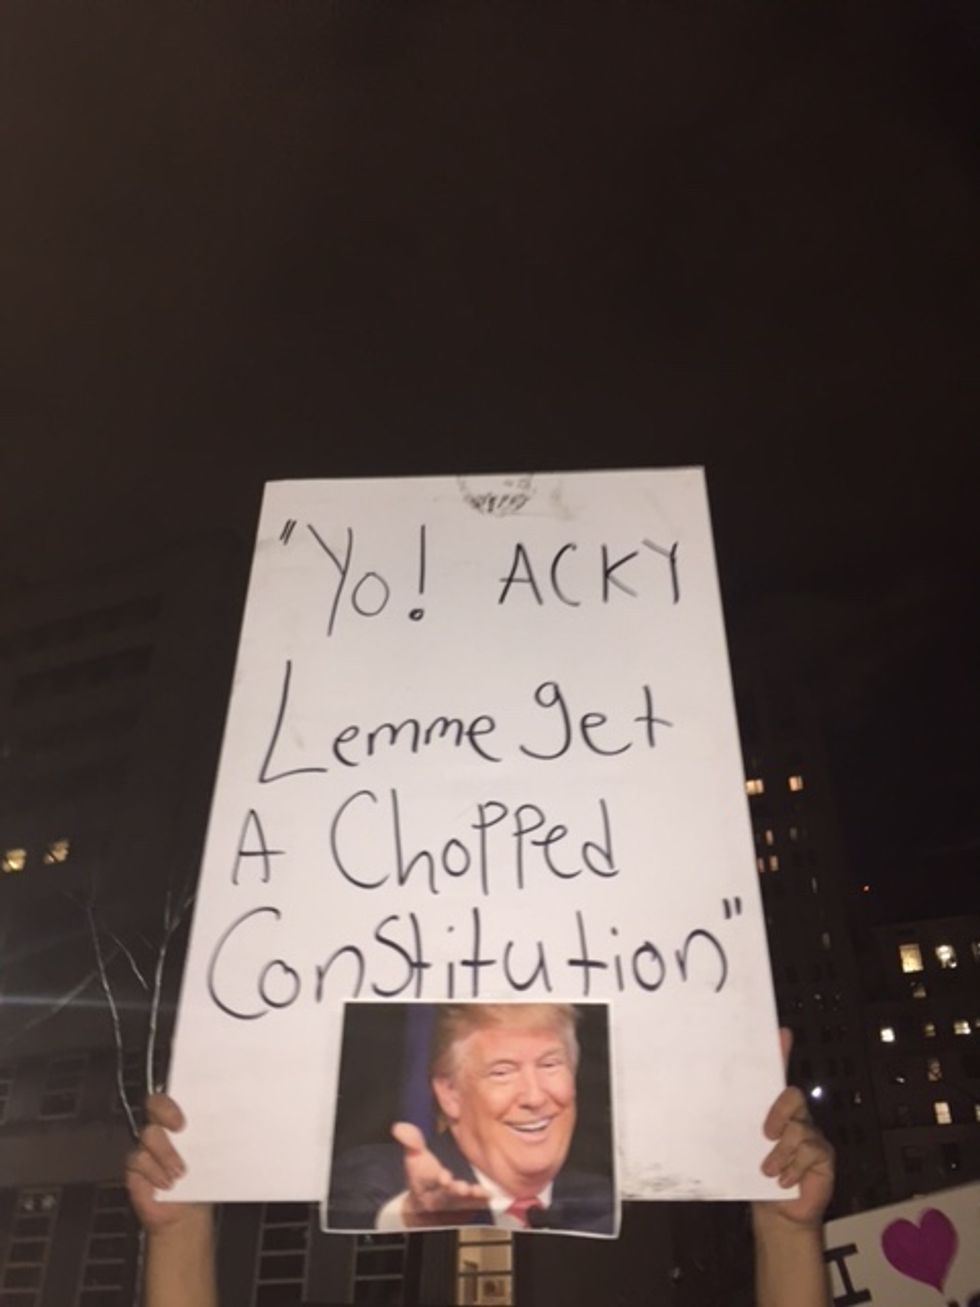 "Yo! ACKY
Lemme get
A Chopped
Constitution"
I